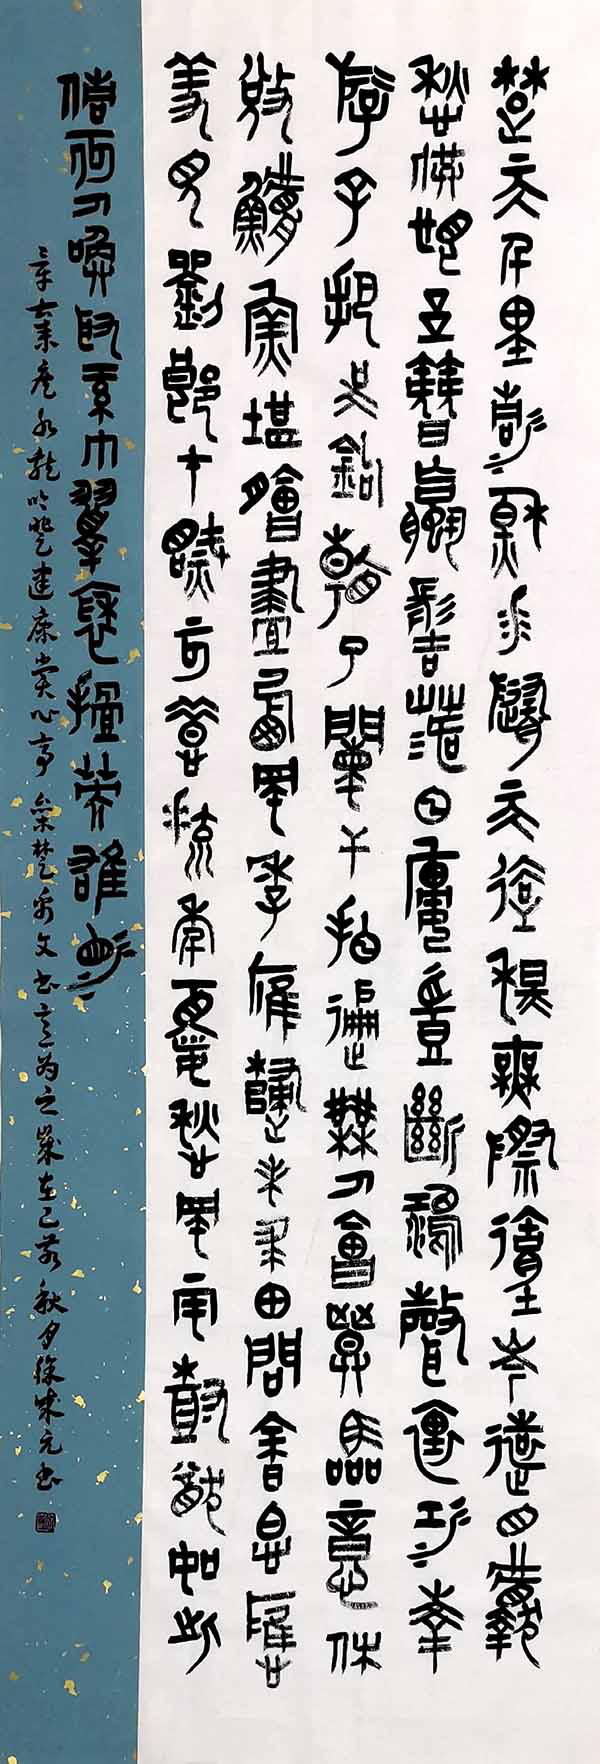 楚天千里清秋水隨天去秋無際遥岑遠目獻
愁供恨玉簪螺髻落日樓頭斷鴻聲裏江南
游子把吴鉤看了闌干拍遍無人會登臨意休
説鱸魚堪膾盡西風季鷹歸未求田問舍怕應
羞見劉郎才氣可惜流年憂愁風雨樹猶如此
倩何人唤取紅巾翠袖揾英雄淚
辛棄疾水龍吟登建康賞心亭集楚帛文书意为之歲在己亥秋月徐成元书